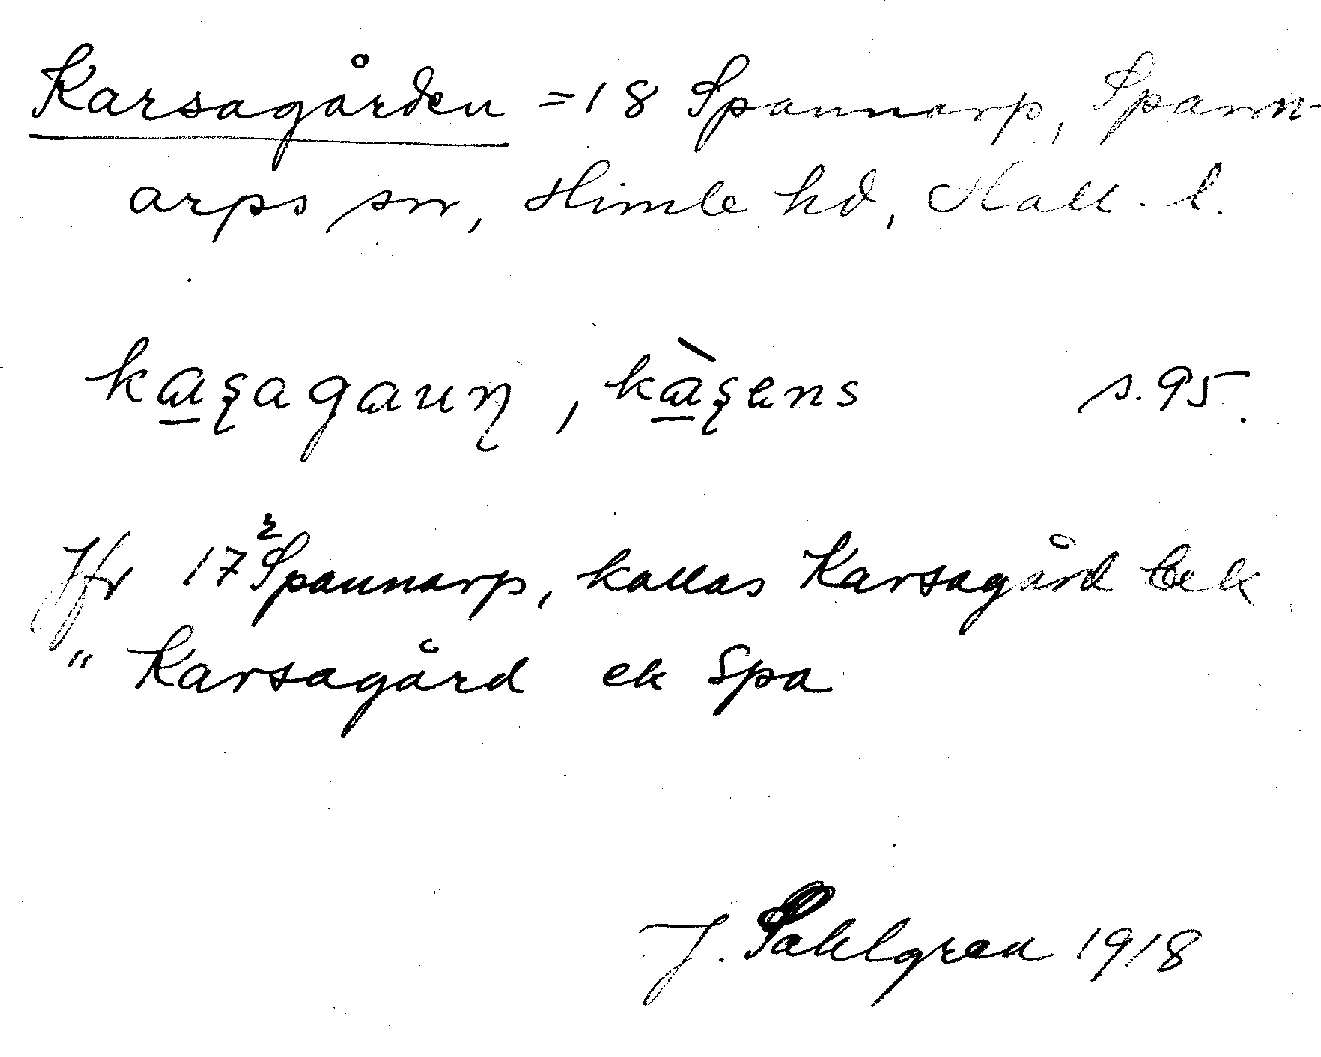 Karsagården = 18 Spannarp, Spann-
arps sn, Himle hd, Hall. l.
kaʂagauɳ, kàʂens s. 95.
Jfr 17² Spannarp, kallas Karsagård
" Karsagård ek Spa
J. Sahlgren 1918